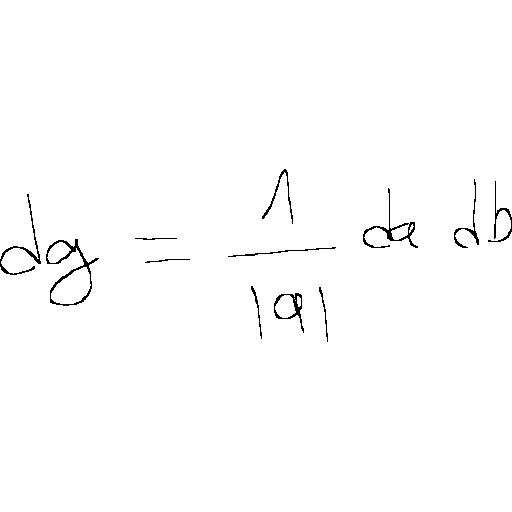 dg = \frac{1}{|a|} da db